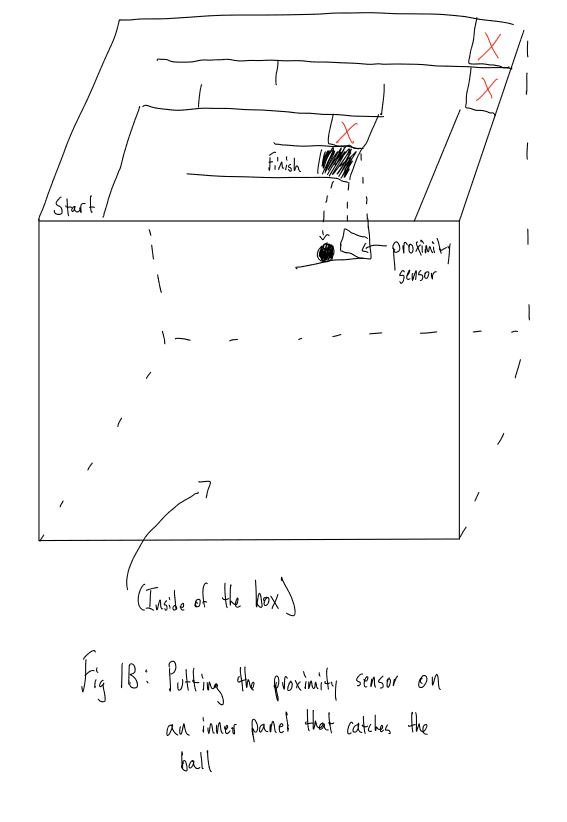 X
X
X
Finish
Start
proximity
sensor
(Inside of the box)
Fig 1B: Putting the proximity sensor on
an inner panel that catches the
ball